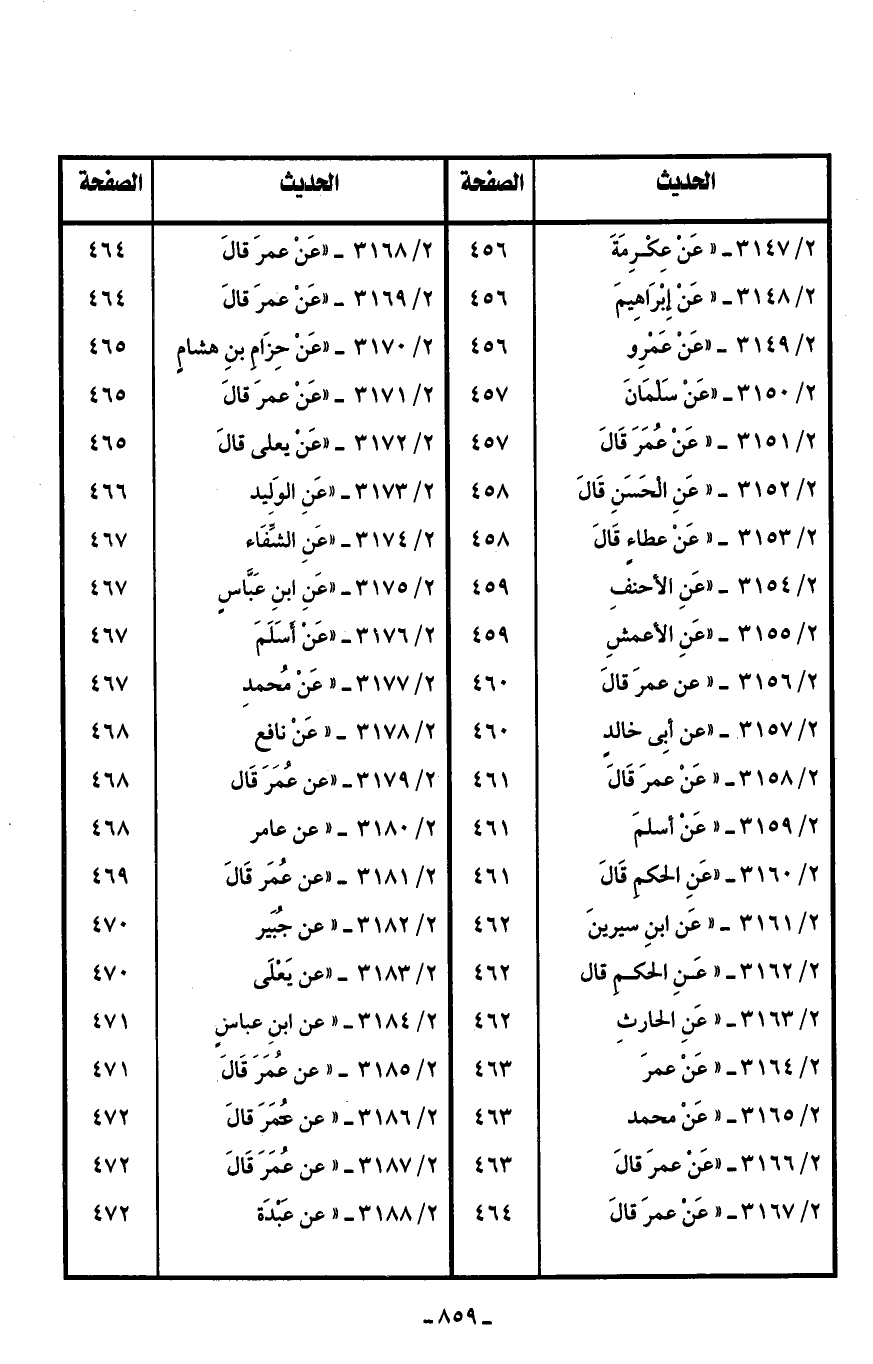 الحديث الصفحة الحديث الصفحة
٢/ ٣١٤٧ ـ « عَنْ عِكْـرِمَةَ ٤٥٦ ٢/ ٣١٦٨ ـ «عَنْ عمرَ قالَ ٤٦٤
٢/ ٣١٤٨ ـ « عَنْ إِبْرَاهِيمَ ٤٥٦ ٢/ ٣١٦٩ ـ «عَنْ عمرَ قالَ ٤٦٤
٢/ ٣١٤٩ ـ «عَنْ عَمْرِو ٤٥٦ ٢/ ٣١٧٠ ـ «عَنْ حِزَامِ بنِ هشامٍ ٤٦٥
٢/ ٣١٥٠ ـ «عَنْ سَلْمَانَ ٤٥٧ ٢/ ٣١٧١ ـ «عَنْ عمرَ قالَ ٤٦٥
٢/ ٣١٥١ ـ « عَنْ عُمَرَ قَالَ ٤٥٧ ٢/ ٣١٧٢ ـ «عَنْ يعلى قالَ ٤٦٥
٢/ ٣١٥٢ ـ « عَنِ الْحَسَنِ قَالَ ٤٥٨ ٢/ ٣١٧٣ ـ «عَنِ الوَلِيد ٤٦٦
٢/ ٣١٥٣ ـ « عَنْ عطاءٍ قَالَ ٤٥٨ ٢/ ٣١٧٤ ـ «عَنِ الشِّفَاء ٤٦٧
٢/ ٣١٥٤ ـ «عَنِ الأحنفِ ٤٥٩ ٢/ ٣١٧٥ ـ «عَنِ ابنِ عَبَّاسٍ ٤٦٧
٢/ ٣١٥٥ ـ «عَنِ الأعمشِ ٤٥٩ ٢/ ٣١٧٦ ـ «عَنْ أَسَلَمَ ٤٦٧
٢/ ٣١٥٦ ـ « عن عمرَ قالَ ٤٦٠ ٢/ ٣١٧٧ ـ « عَنْ مُحمدِ ٤٦٧
٢/ ٣١٥٧ ـ «عن أبِى خالدٍ ٤٦٠ ٢/ ٣١٧٨ ـ « عَنْ نافع ٤٦٨
٢/ ٣١٥٨ ـ « عَنْ عمرَ قَالَ ٤٦١ ٢/ ٣١٧٩ ـ «عن عُمَرَ قَال ٤٦٨
٢/ ٣١٥٩ ـ « عَنْ أسلمَ ٤٦١ ٢/ ٣١٨٠ ـ « عن عامر ٤٦٨
٢/ ٣١٦٠ ـ «عَنِ الحكمِ قَالَ ٤٦١ ٢/ ٣١٨١ ـ «عن عُمَر قَالَ ٤٦٩
٢/ ٣١٦١ ـ « عَن ابنِ سيرينَ ٤٦٢ ٢/ ٣١٨٢ ـ « عن جُبَير ٤٧٠
٢/ ٣١٦٢ ـ « عَـنِ الحكـمِ قال ٤٦٢ ٢/ ٣١٨٣ ـ «عن يَعْلَى ٤٧٠
٢/ ٣١٦٣ ـ « عَنِ الحارثِ ٤٦٢ ٢/ ٣١٨٤ ـ « عن ابنِ عباسٍ ٤٧١
٢/ ٣١٦٤ ـ « عَنْ عمرَ ٤٦٣ ٢/ ٣١٨٥ ـ « عن عُمَرَ قَالَ ٤٧١
٢/ ٣١٦٥ ـ « عَنْ محمد ٤٦٣ ٢/ ٣١٨٦ ـ « عن عُمَرَ قالَ ٤٧٢
٢/ ٣١٦٦ ـ «عَنْ عمرَ قالَ ٤٦٣ ٢/ ٣١٨٧ ـ « عن عُمَرَ قَالَ ٤٧٢
٢/ ٣١٦٧ ـ « عَنْ عمرَ قالَ ٤٦٤ ٢/ ٣١٨٨ ـ « عن عَبْدَة ٤٧٢
ـ ٨٥٩ ـ